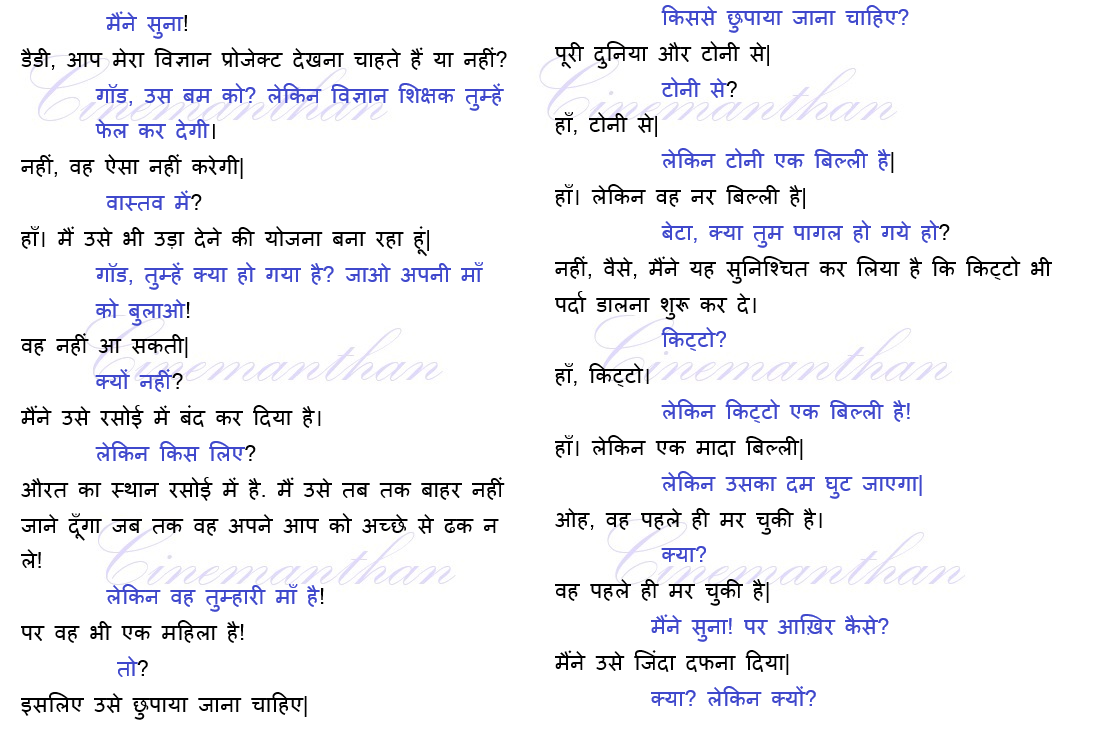 मैंने सुना!
डैडी, आप मेरा विज्ञान प्रोजेक्ट देखना चाहते हैं या नहीं?
गॉड, उस बम को? लेकिन विज्ञान शिक्षक तुम्हें
फेल कर देगी।
नहीं, वह ऐसा नहीं करेगी|
वास्तव में?
हाँ। मैं उसे भी उड़ा देने की योजना बना रहा हूं|
गॉड, तुम्हें क्या हो गया है? जाओ अपनी माँ
को बुलाओ!
वह नहीं आ सकती|
क्यों नहीं?
मैंने उसे रसोई में बंद कर दिया है।
लेकिन किस लिए?
औरत का स्थान रसोई में है. मैं उसे तब तक बाहर नहीं
जाने दूँगा जब तक वह अपने आप को अच्छे से ढक न
ले!
लेकिन वह तुम्हारी माँ है!
पर वह भी एक महिला है!
तो?
इसलिए उसे छुपाया जाना चाहिए|
किससे छुपाया जाना चाहिए?
पूरी दुनिया और टोनी से|
टोनी से?
हाँ, टोनी से|
लेकिन टोनी एक बिल्ली है|
हाँ। लेकिन वह नर बिल्ली है|
बेटा, क्या तुम पागल हो गये हो?
नहीं, वैसे, मैंने यह सुनिश्चित कर लिया है कि किट्टो भी
पर्दा डालना शुरू कर दे।
किट्टो?
हाँ, किट्टो।
लेकिन किट्टो एक बिल्ली है!
हाँ। लेकिन एक मादा बिल्ली|
लेकिन उसका दम घुट जाएगा|
ओह, वह पहले ही मर चुकी है।
क्या?
वह पहले ही मर चुकी है|
मैंने सुना! पर आख़िर कैसे?
मैंने उसे जिंदा दफना दिया|
क्या? लेकिन क्यों?
Cinemanthan
Cinemanthan
Cinemanthan
Cinemanthan
Cinemanthan
Cinemanthan